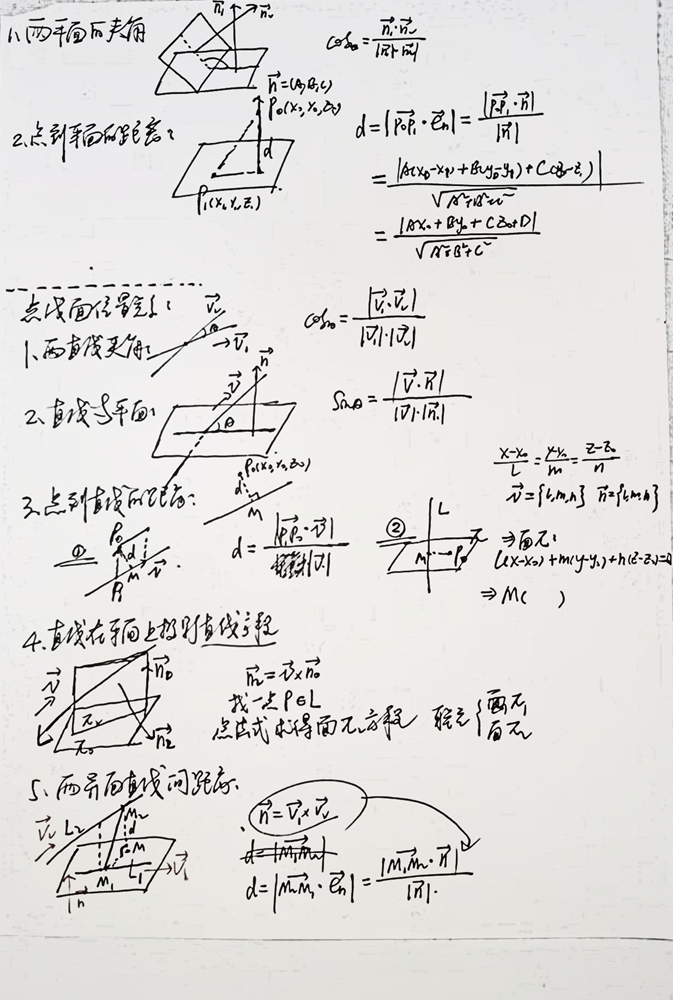 1、两平面的夹角
n₁ n₂
cosθ = n₁·n₂ / |n₁|·|n₂|
n=(A,B,C)
P₀(x₀,y₀,z₀)
2、点到平面的距离:
d
P₁(x₁,y₁,z₁)
d = |P₀P₁·eₙ| = |P₀P₁·n| / |n|
= |A(x₀-x₁)+B(y₀-y₁)+C(z₀-z₁)| / √A²+B²+C²
= |Ax₀+By₀+Cz₀+D| / √A²+B²+C²
点线面位置关系:
1、两直线夹角:
V₂ θ V₁
cosθ = |V₁·V₂| / |V₁|·|V₂|
2、直线与平面:
V n θ
sinθ = |V·n| / |V|·|n|
x-x₀/L = y-y₀/m = z-z₀/n
v={l,m,n} n={l,m,n}
3、点到直线的距离:
P₀(x₀,y₀,z₀)
d M
① P₀ d M V P₁
d = / |V|
② L M P₀ π
⇒面π:
l(x-x₀)+m(y-y₀)+n(z-z₀)=0
⇒ M( )
4、直线在平面上投影直线方程
V n₀ π₂ π₀ n₂
n₂ = v×n₀
找一点P∈L
点法式求得面π₂方程 联立 { 面π₁ 面π₂
5、两异面直线间距离、
V₂ L₂ M₂ d M M₁ L₁ V₁ n
n = V₁×V₂
d = |M₁M₂|
d = |M₂M₁·eₙ| = |M₁M₂·n| / |n|.